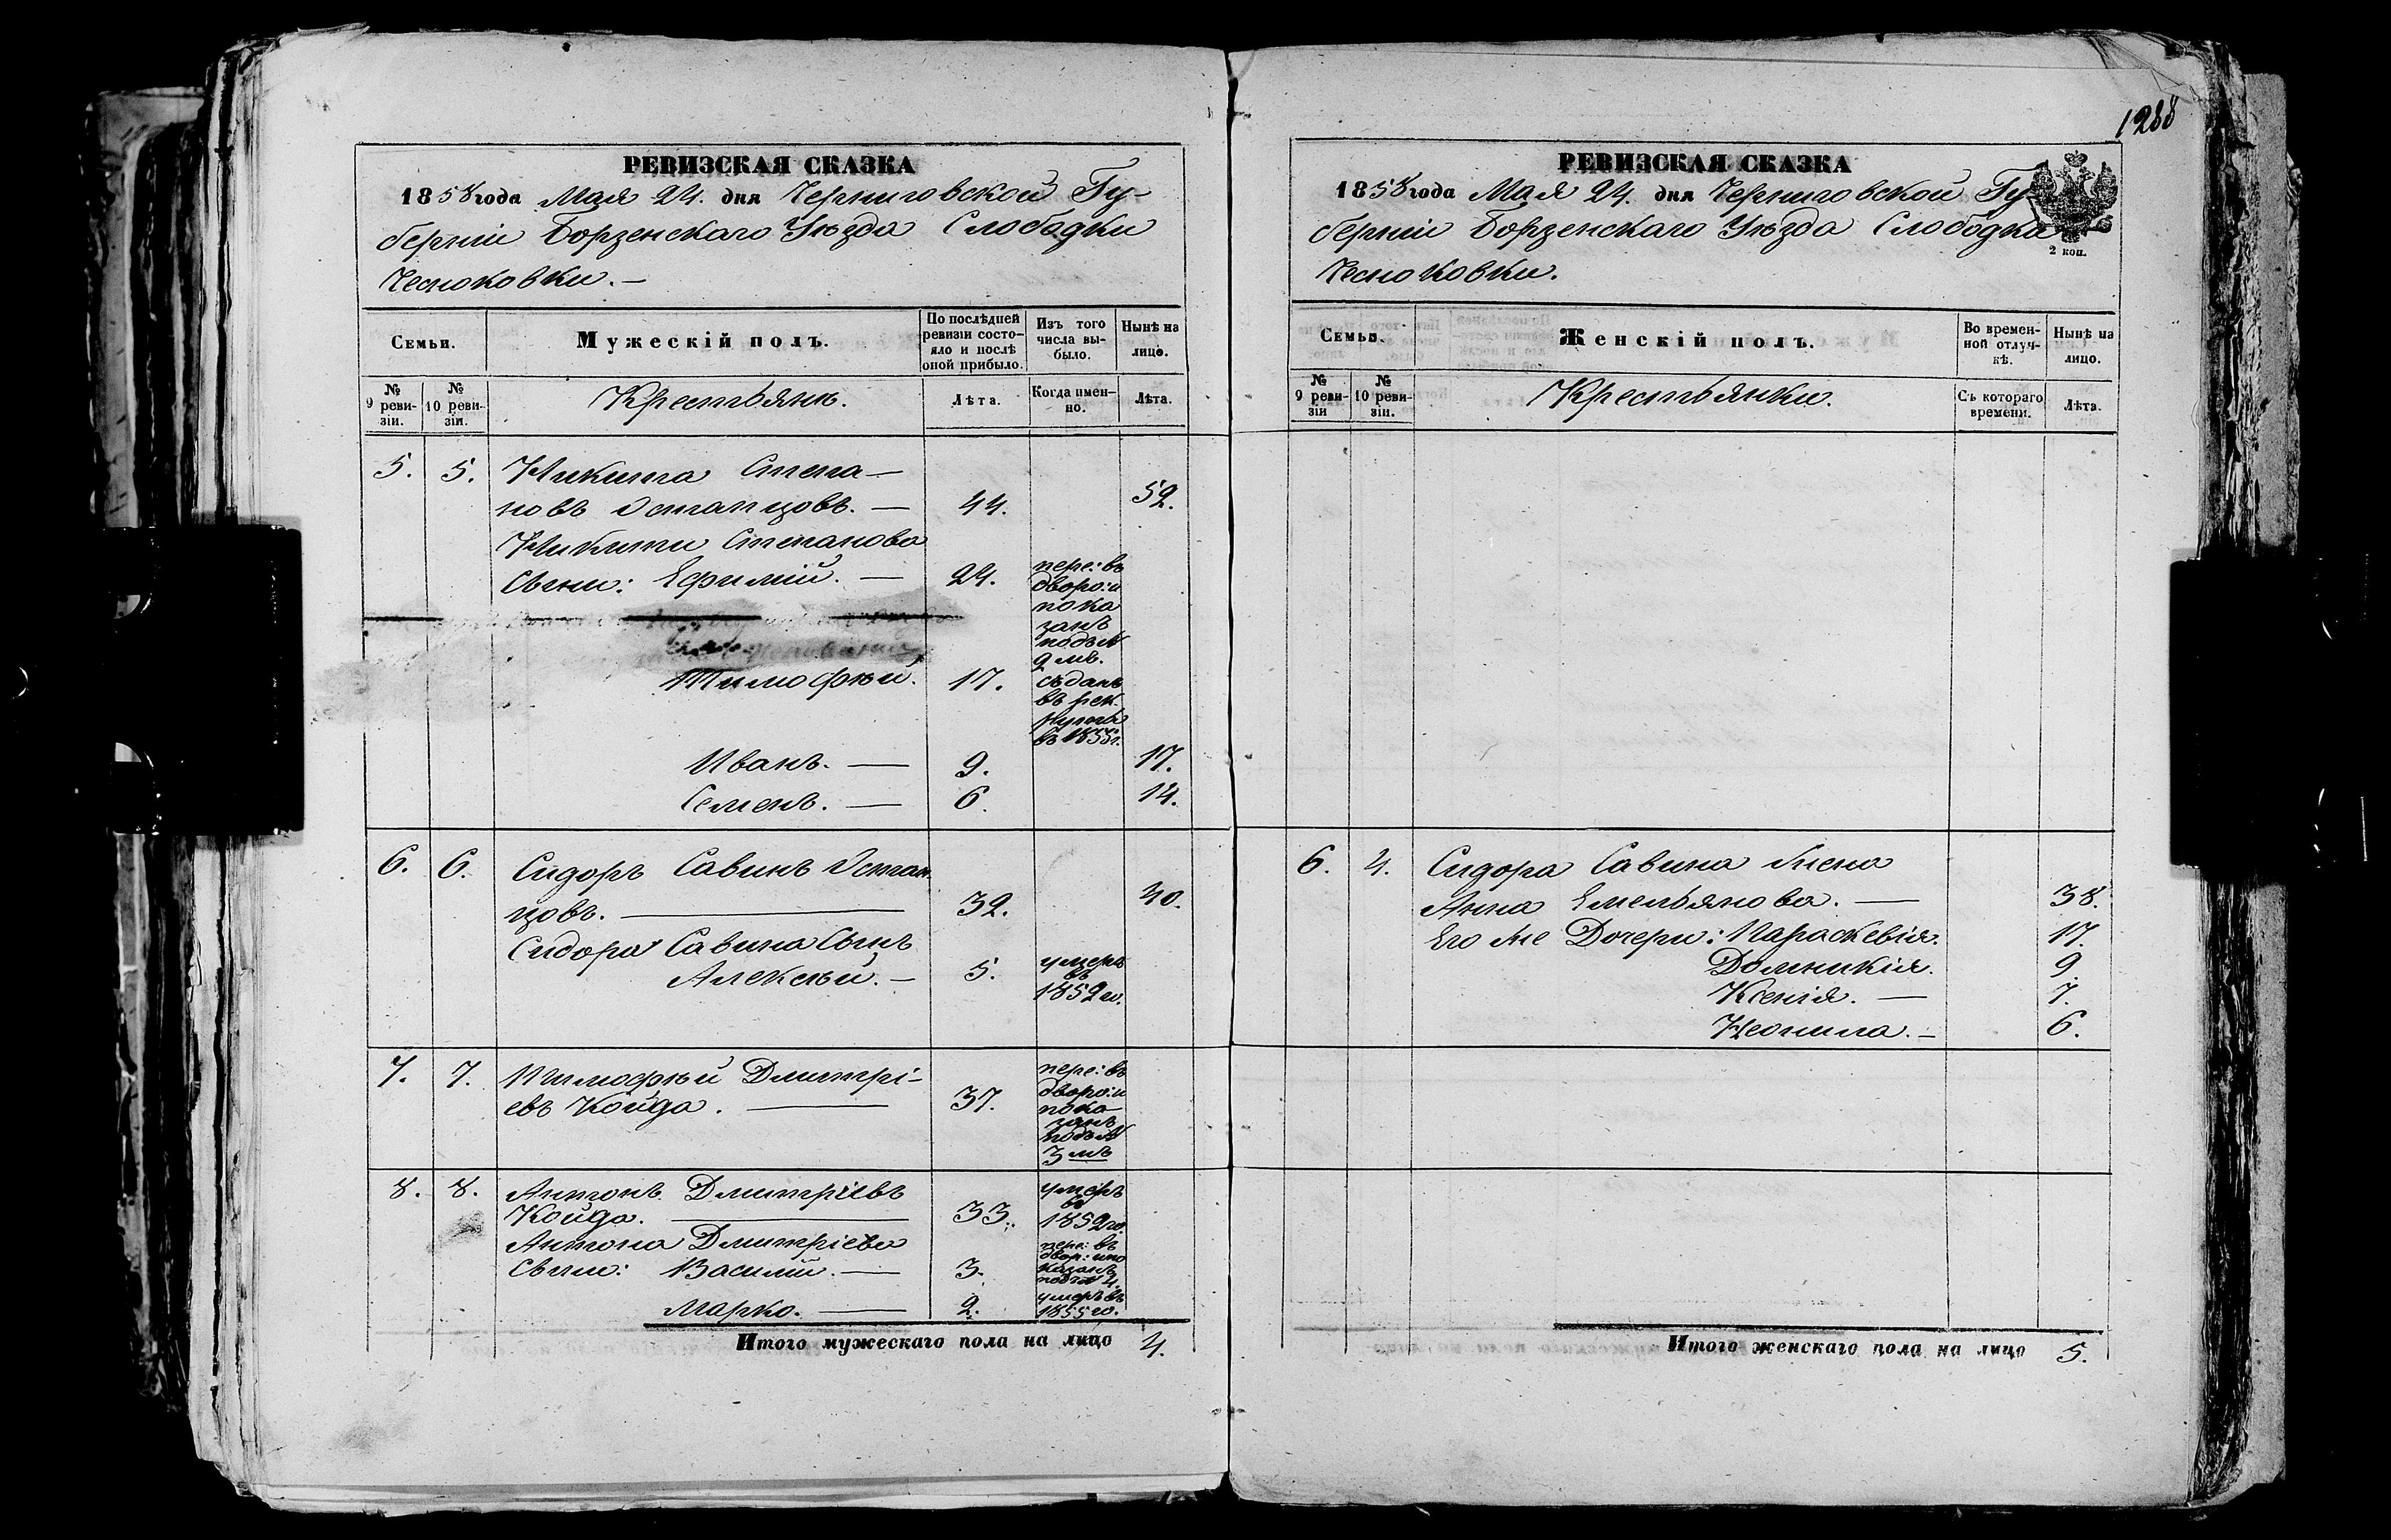 РЕВИЗСКАЯ СКАЗКА
1858 года Мая 24. дня Черниговской Гу-
берніи Борзенскаго Уѣзда Слободки
Чесноковки. —
Семьи.
Мужескій полъ.
По послѣдней ревизіи состо-яло и послѣ оной прибыло.
Изъ того числа вы-было.
Нынѣ на лицо.
№ 9 реви-зіи.
№ 10 реви-зіи.
Крестьянъ.
Лѣта.
Когда имен-но.
Лѣта.
5. 5. Никита Степа-
новъ Остапцовъ. — 44. 52.
Никиты Степанова
Сыны: Ефимій. — 24. пере: въ
дворо: и
пока
занъ
подъ №
2 мъ.
Тимофѣй. 17. сданъ
въ рек-
руты
въ 1855г.
Иванъ. — 9. 17.
Семенъ. — 6. 14.
6. 6. Сидоръ Савинъ Остап
цовъ. — 32. 40.
Сидора Савина Сынъ
Алексѣй. — 5. умеръ
въ
1852 го.
7. 7. Тимофѣй Дмитрі-
евъ Койда. — 37. пере: въ
дворо: и
пока-
занъ
подъ №
3 мъ
8. 8. Антонъ Дмитріевъ
Койда. — 33. умеръ
въ
1852 го
Антона Дмитріева
Сыны: Василій. — 3. пере: въ
двор: и по
казанъ
подъ № 4.
Марко. — 2. умеръ въ
1855 го.
Итого мужескаго пола на лицо 4.
1288
РЕВИЗСКАЯ СКАЗКА
1858 года Мая 24. дня Черниговской Гу-
берніи Борзенскаго Уѣзда Слободки
Чесноковки.
2 коп.
Семьи.
Женскій полъ.
Во времен-ной отлуч-кѣ.
Нынѣ на лицо.
№ 9 реви-зіи
№ 10 реви-зіи.
Крестьянки.
Съ котораго времени.
Лѣта.
6. 4. Сидора Савина Жена
Анна Емельянова. — 38.
Его же Дочери: Параскевія. 17.
Домникія. 9.
Ксенія. — 7.
Неонила. — 6.
Итого женскаго пола на лицо 5.